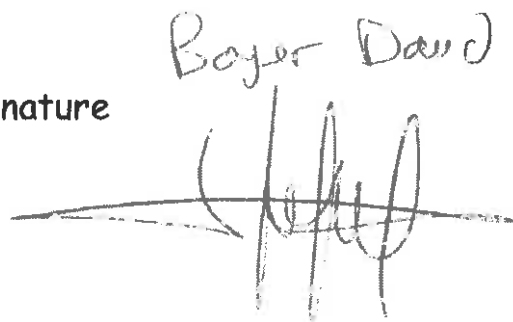 Boyer David
nature